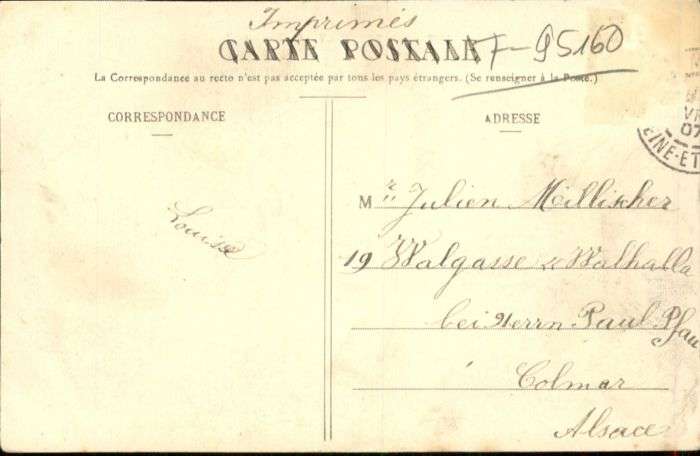 Imprimés
CARTE POSTALE F-95160
La Correspondance au recto n'est pas acceptée par tons les pays étrangers. (Se renseigner à la Poste.)
CORRESPONDANCE
ADRESSE
VI
07
EINE-ET
Louise
Mr Julien Millischer
19 Walgasse « Walhalla
bei Herrn Paul Pfau
Colmar
Alsace